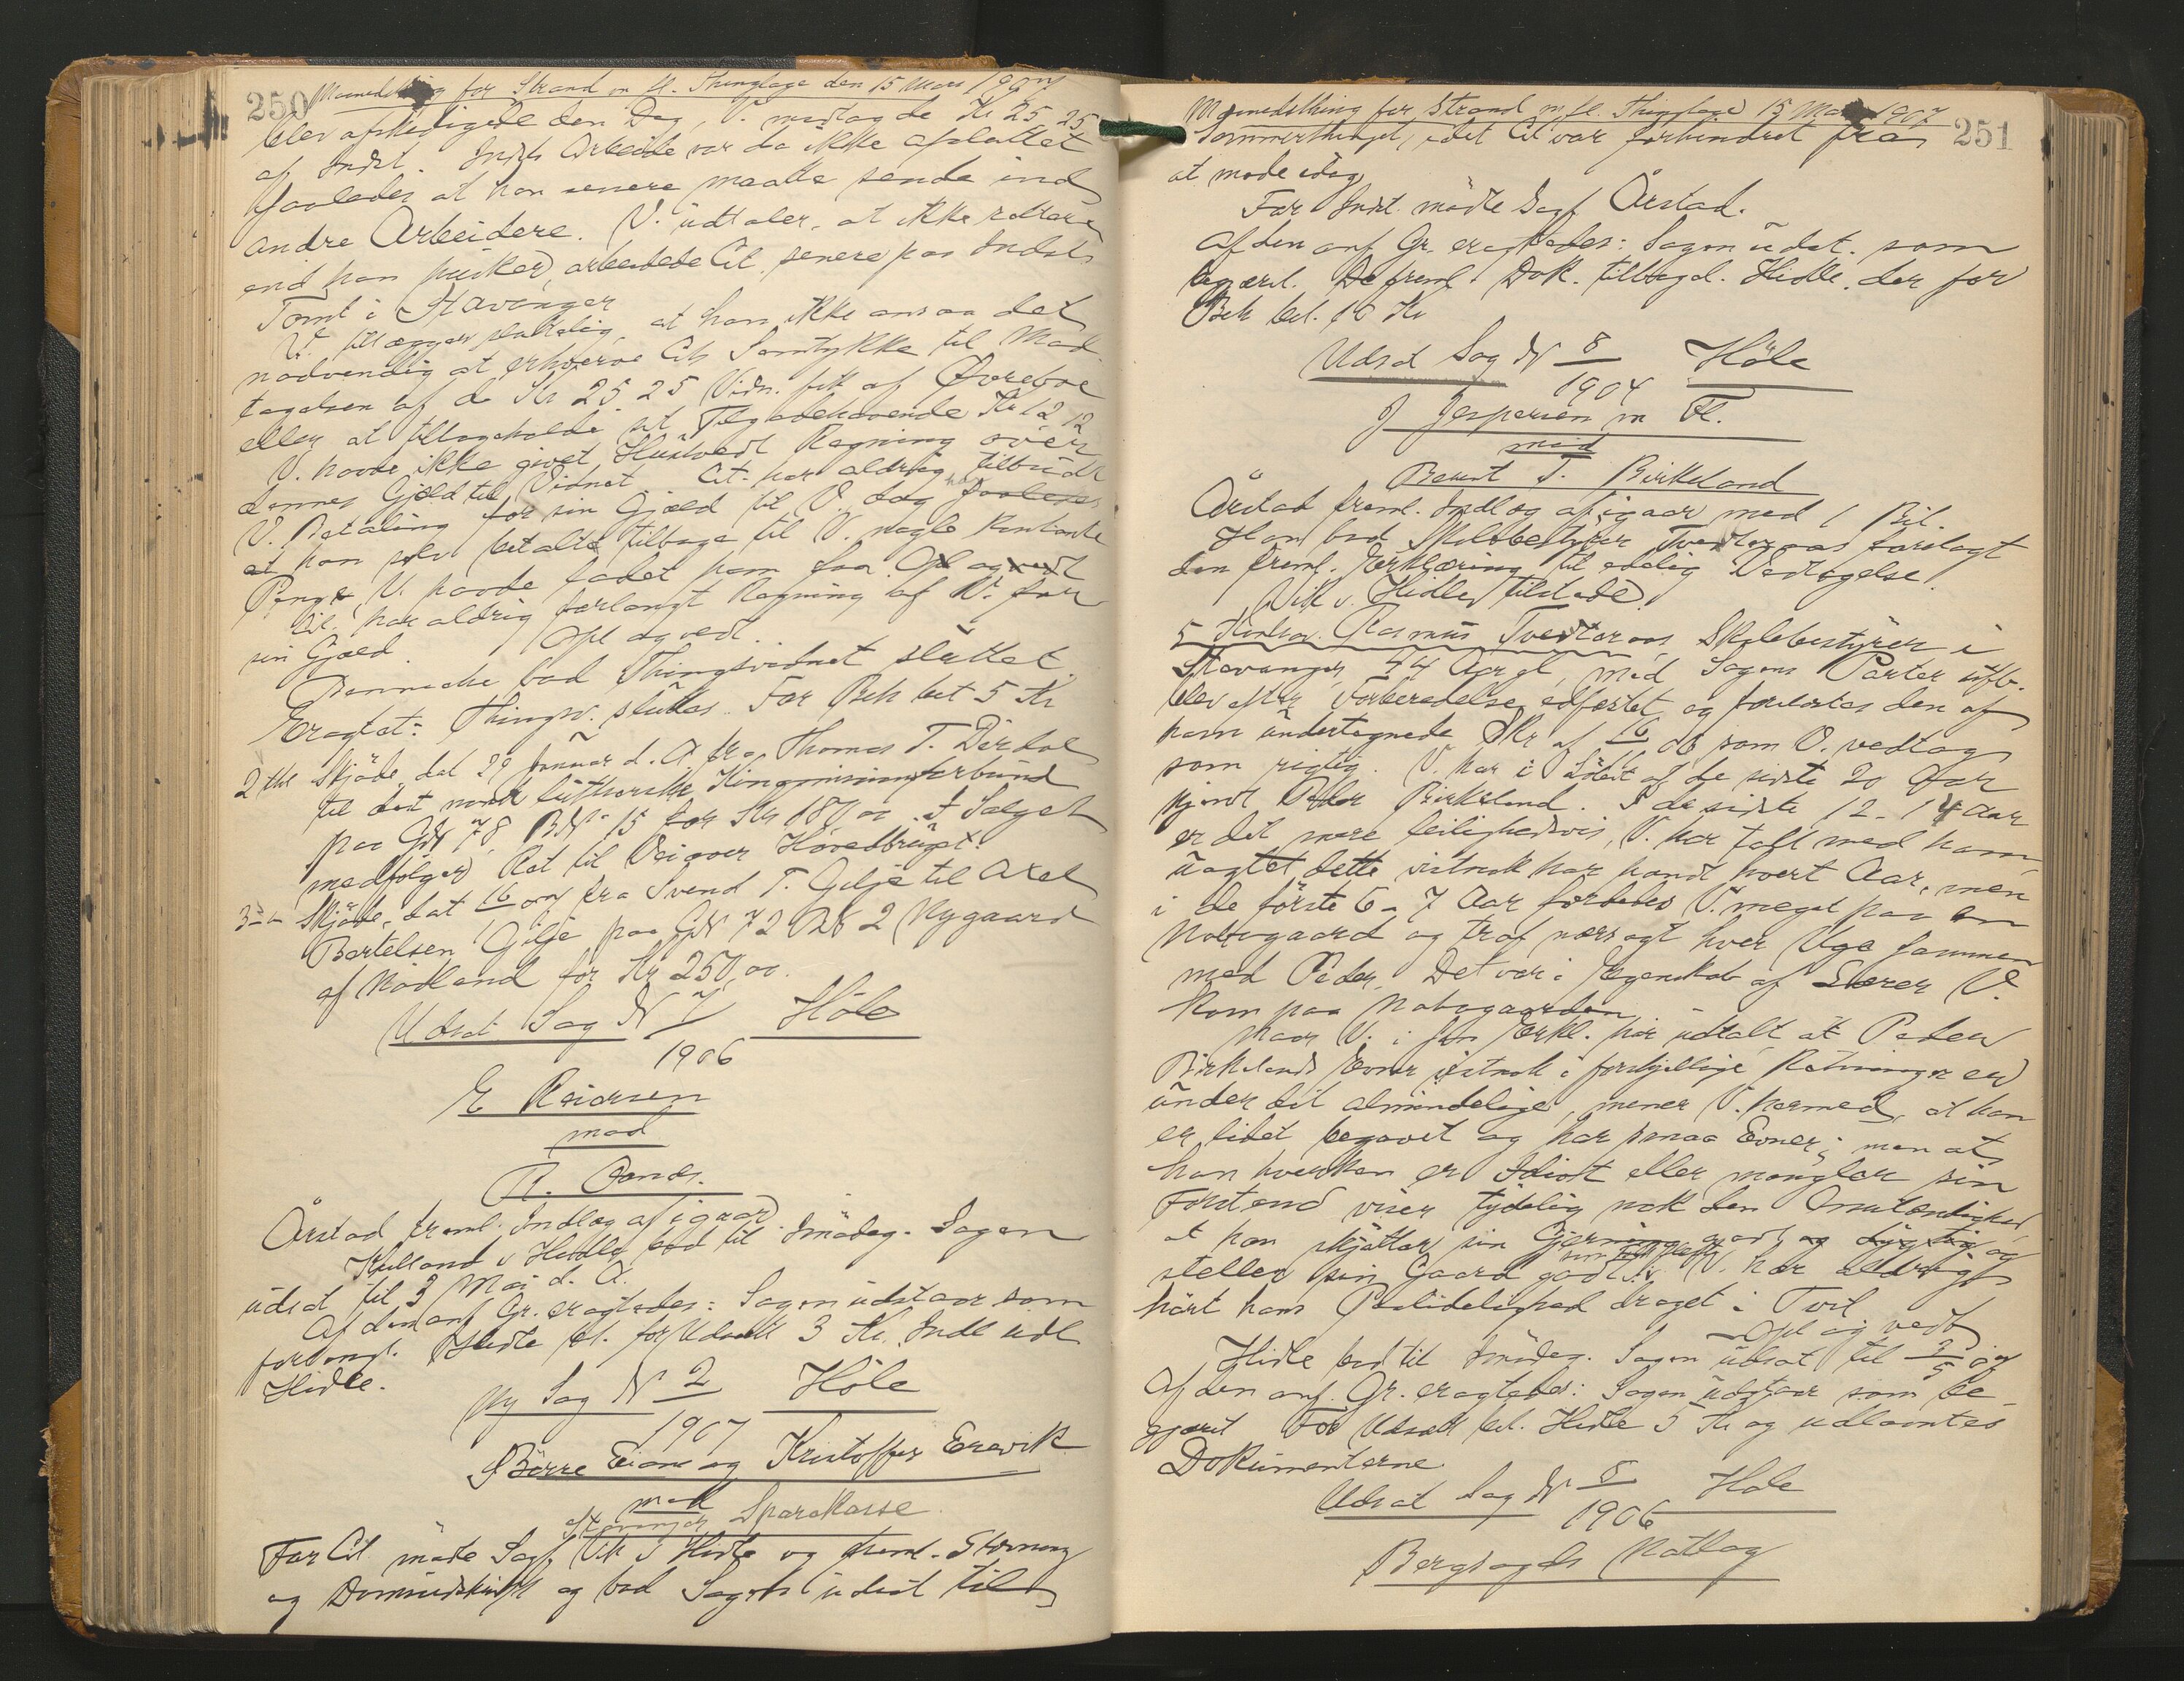 250
Maanedsting for Strand m fl. Thinglage den 15 Mars 1907
blev afskediget den Dag, V. modtog de Kr 25,25
af Indst. Indst Arbeide var da ikke afsluttet
saaledes at han senere maatte sende ind
andre Arbeidere. V. udtaler, at ikke rettere
end han husker, arbeidede Cit. senere paa Indsts
Tomt i Stavanger
V. tillægger at han ikke ansaa det
nødvendig at erhverve Cits Samtykke til Mod-
tagelsen af de Kr 25.25 Vidn. fik af Øvrebøe
eller at tilbageholde sit Tilgodehavende Kr 12 12
V. havde ikke givet Regning over
dennes Gjæld til Vidnet. Cit. har aldrig tilbudt
V. Betaling for sin Gjæld til V. dog
at han selv betalte tilbage til V. nogle kontante
Penge, V. havde ladet ham faa. Opl og vedt
Cit. har aldrig forlangt Regning af V. for
sin Gjæld. Opl og vedt.
bad Thingsvidnet sluttet
Eragtet: Thingsv. sluttes. For Beh bet 5 Kr
2 Skjøde dat 29 Januar d. A. fra Thomas T. Dirdal
til det norsk lutherske Kinamisionsforbund
paa GN 78 BN 15 for Kr 180 00. I Salget
medfølger Ret til Vei over Hovedbruget.
3 Skjøde, dat 16 07 fra Svend T. Gilje til Axel
Bertelsen Gilje paa GN 72 BN 2 Nygaard
af Mødland for Kr 250,00.
Udsat Sag N 7 Høle
1906
E Reiarsen
mod
R.
Årstad freml. Indlæg af igaar
v Hidle bad til Imødeg. Sagen
udsat til 3 Mai d. A.
Af den anf Gr. eragtedes: Sagen udstaar som
forlangt. Hidle bet. for Udsætt 3 Kr. Indl udl
Hidle.
Ny Sag N 2 Høle
1907
Børre Eiane og Kristoffer Erevik
mod
Stavanger Sparekasse
For Cit. mødte Sagf. Vik v Hidle og freml. Stevning
og Domsudskrift og bad Sagen udsat til
251
Maanedsthing for Strand m. fl. Thinglage 15 Mars 1907
Sommerthinget, idet Cit var forhindret fra
at møde idag
For Indst. mødte Sagf Årstad.
Af den anf Gr. eragtedes: Sagen udst. som
begært. De freml. Dok. tilbagel. Hidle, der for
Beh bet. 10 Kr
Udsat Sag N 8 Høle
1904
J Jespersen m Fl.
mod
Berent T. Birkeland
Årstad freml. Indlæg af igaar med 1 Bil.
Han bad Skolebestyrer Tvedteraas forelagt
den freml. Erklæring til edelig Vedtagelse.
Vik v. Hidle tilstede.
5 Rasmus Tvedteraas Skolebestyrer i
Stavanger, 44 Aar gl, med Sagens Parter
blev efter Forberedelse edfæstet og forelæstes den af
ham undertegnede Skr af 16 06 som V. vedtog
som rigtig. V. har i Løbet af de sidste 20 Aar
kjendt Peder Birkeland. I de sidste 12-14 Aar
er det mere leilighedsvis, V. har talt med ham,
uagtet dette vistnok har hændt hvert Aar, men
i de første 6-7 Aar færdedes V. meget paa en
Nabogaard og traf næsagt hver Uge sammen
med Peder. Det var i Egenskab af Lærer V.
kom paa Nabogaarden
Naar V. i sin Erkl. har udtalt at Peder
Birkelands Evner vistnok i forskjellige Retninger er
under det almindelige, mener V. hermed, at han
er lidet begavet og har smaa Evner; men at
han hverken er Idiot eller mangler sin
Forstand viser tydelig nok den Omstændighed,
at han skjøtter sin Gjerning godt og dygtig og
steller sin Gaard godt. V. har aldrig
hørt hans Paalidelighed draget i Tvil
Opl og vedt
Hidle bad til Imødeg. Sagen udsat til 3/5 07
Af den anf. Gr. eragtedes: Sagen udstaar som be-
gjæret For Udsætt bet. Hidle 5 Kr og udlaantes
Dokumenterne
Udsat Sag N 5 Høle
1906
Bergsagels Matlag